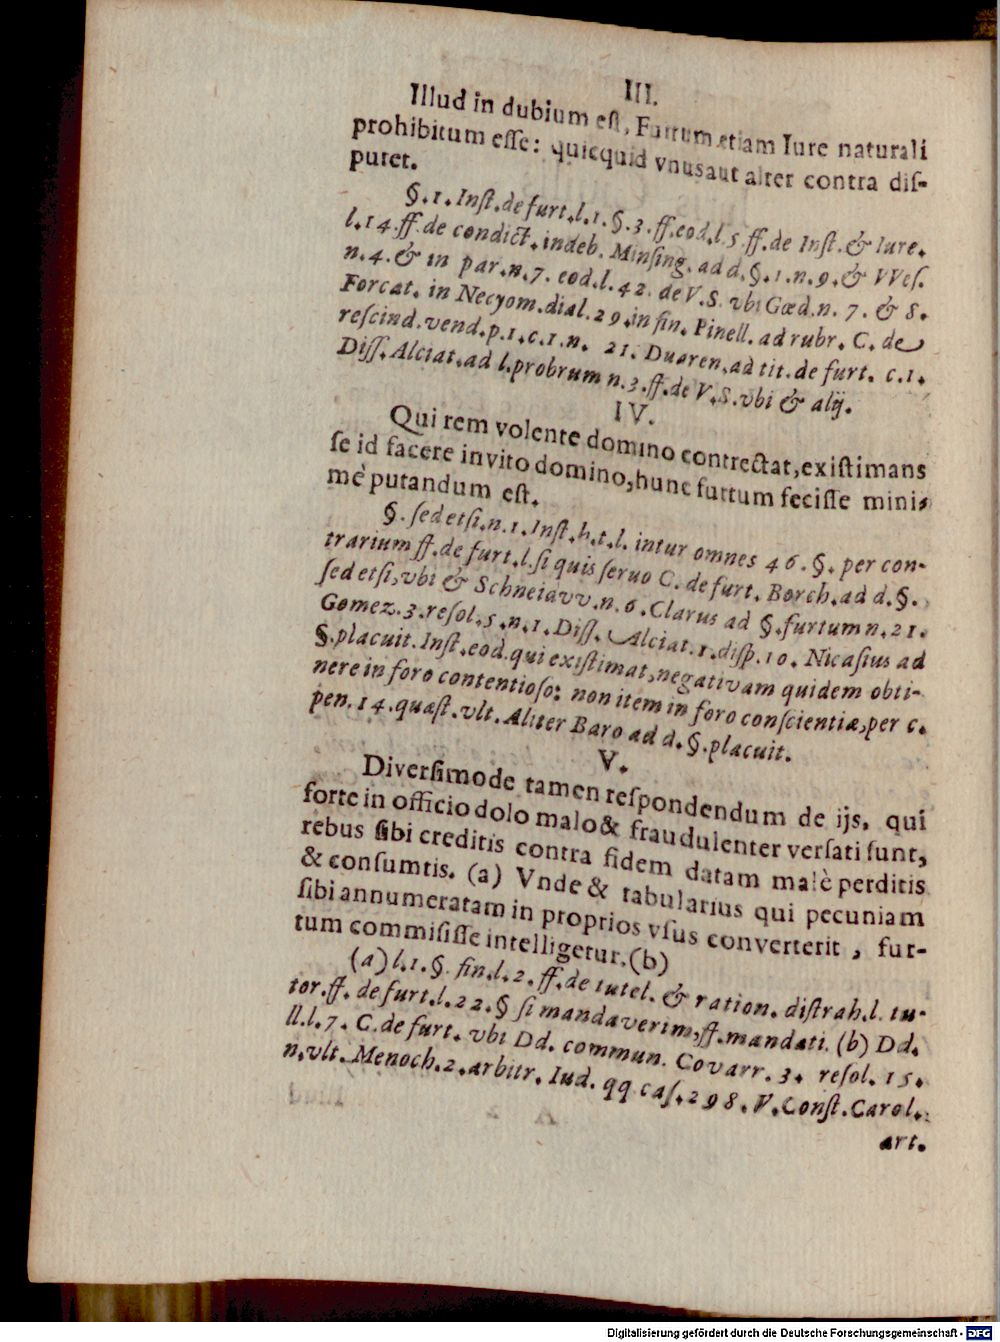 III.
Illud in dubium eſt, Furtum etiam Iure naturali
prohibitum eſſe: quicquid vnus aut alter contra diſ-
putet.
§.1. Inſt. de furt. l.1.§.3.ff.eod.l.5.ff. de Inſt. & Iure.
l.14.ff. de condict. indeb. Minſing. ad d.§.1.n.9.& VVeſ.
n.4.& in par.n.7. eod.l.42. de V.S. vbi Gœd.n. 7. & 8.
Forcat. in Necyom.dial.29.in fin. Pinell. ad rubr. C. de
reſcind.vend.p.1.c.1.n. 21. Duaren.ad tit.de furt. c.1.
Diſſ.Alciat.ad l.probrum n.3.ff.de V.S.vbi & alij.
IV.
Qui rem volente domino contrectat, exiſtimans
ſe id facere invito domino, hunc furtum feciſſe mini-
mè putandum eſt.
§. ſed etſi.n.1.Inſt.h.t.l. intur omnes 46.§. per con-
trarium ff. de furt.l.ſi quis ſeruo C. de furt. Borch.ad d.§.
ſed etſi, vbi & Schneiavv.n.6.Clarus ad §.furtum n.21.
Gomez.3.reſol.5.n.1.Diſſ. Alciat.1.diſp.10. Nicaſius ad
§.placuit.Inſt.eod.qui exiſtimat, negativam quidem obti-
nere in foro contentioſo: non item in foro conſcientiæ, per c.
pen.14.quæſt.vlt. Aliter Baro ad d.§.placuit.
V.
Diverſimode tamen reſpondendum de ijs, qui
forte in officio dolo malo & fraudulenter verſati ſunt,
rebus ſibi creditis contra fidem datam malè perditis
& conſumtis. (a) Vnde & tabularius qui pecuniam
ſibi annumeratam in proprios vſus converterit, fur-
tum commiſiſſe intelligetur.(b)
(a) l.1.§. fin.l.2.ff.de tutel. & ration. diſtrah.l. tu-
tor.ff. de furt.l.22.§ ſi mandaverim, ff.mandati. (b) Dd.
ll.l.7. C.de furt. vbi Dd. commun. Covarr. 3. reſol. 15.
n.vlt. Menoch.2.arbitr. Iud. qq caſ.298. V.Conſt.Carol.
art.
Digitalisierung gefördert durch die Deutsche Forschungsgemeinschaft - DFG